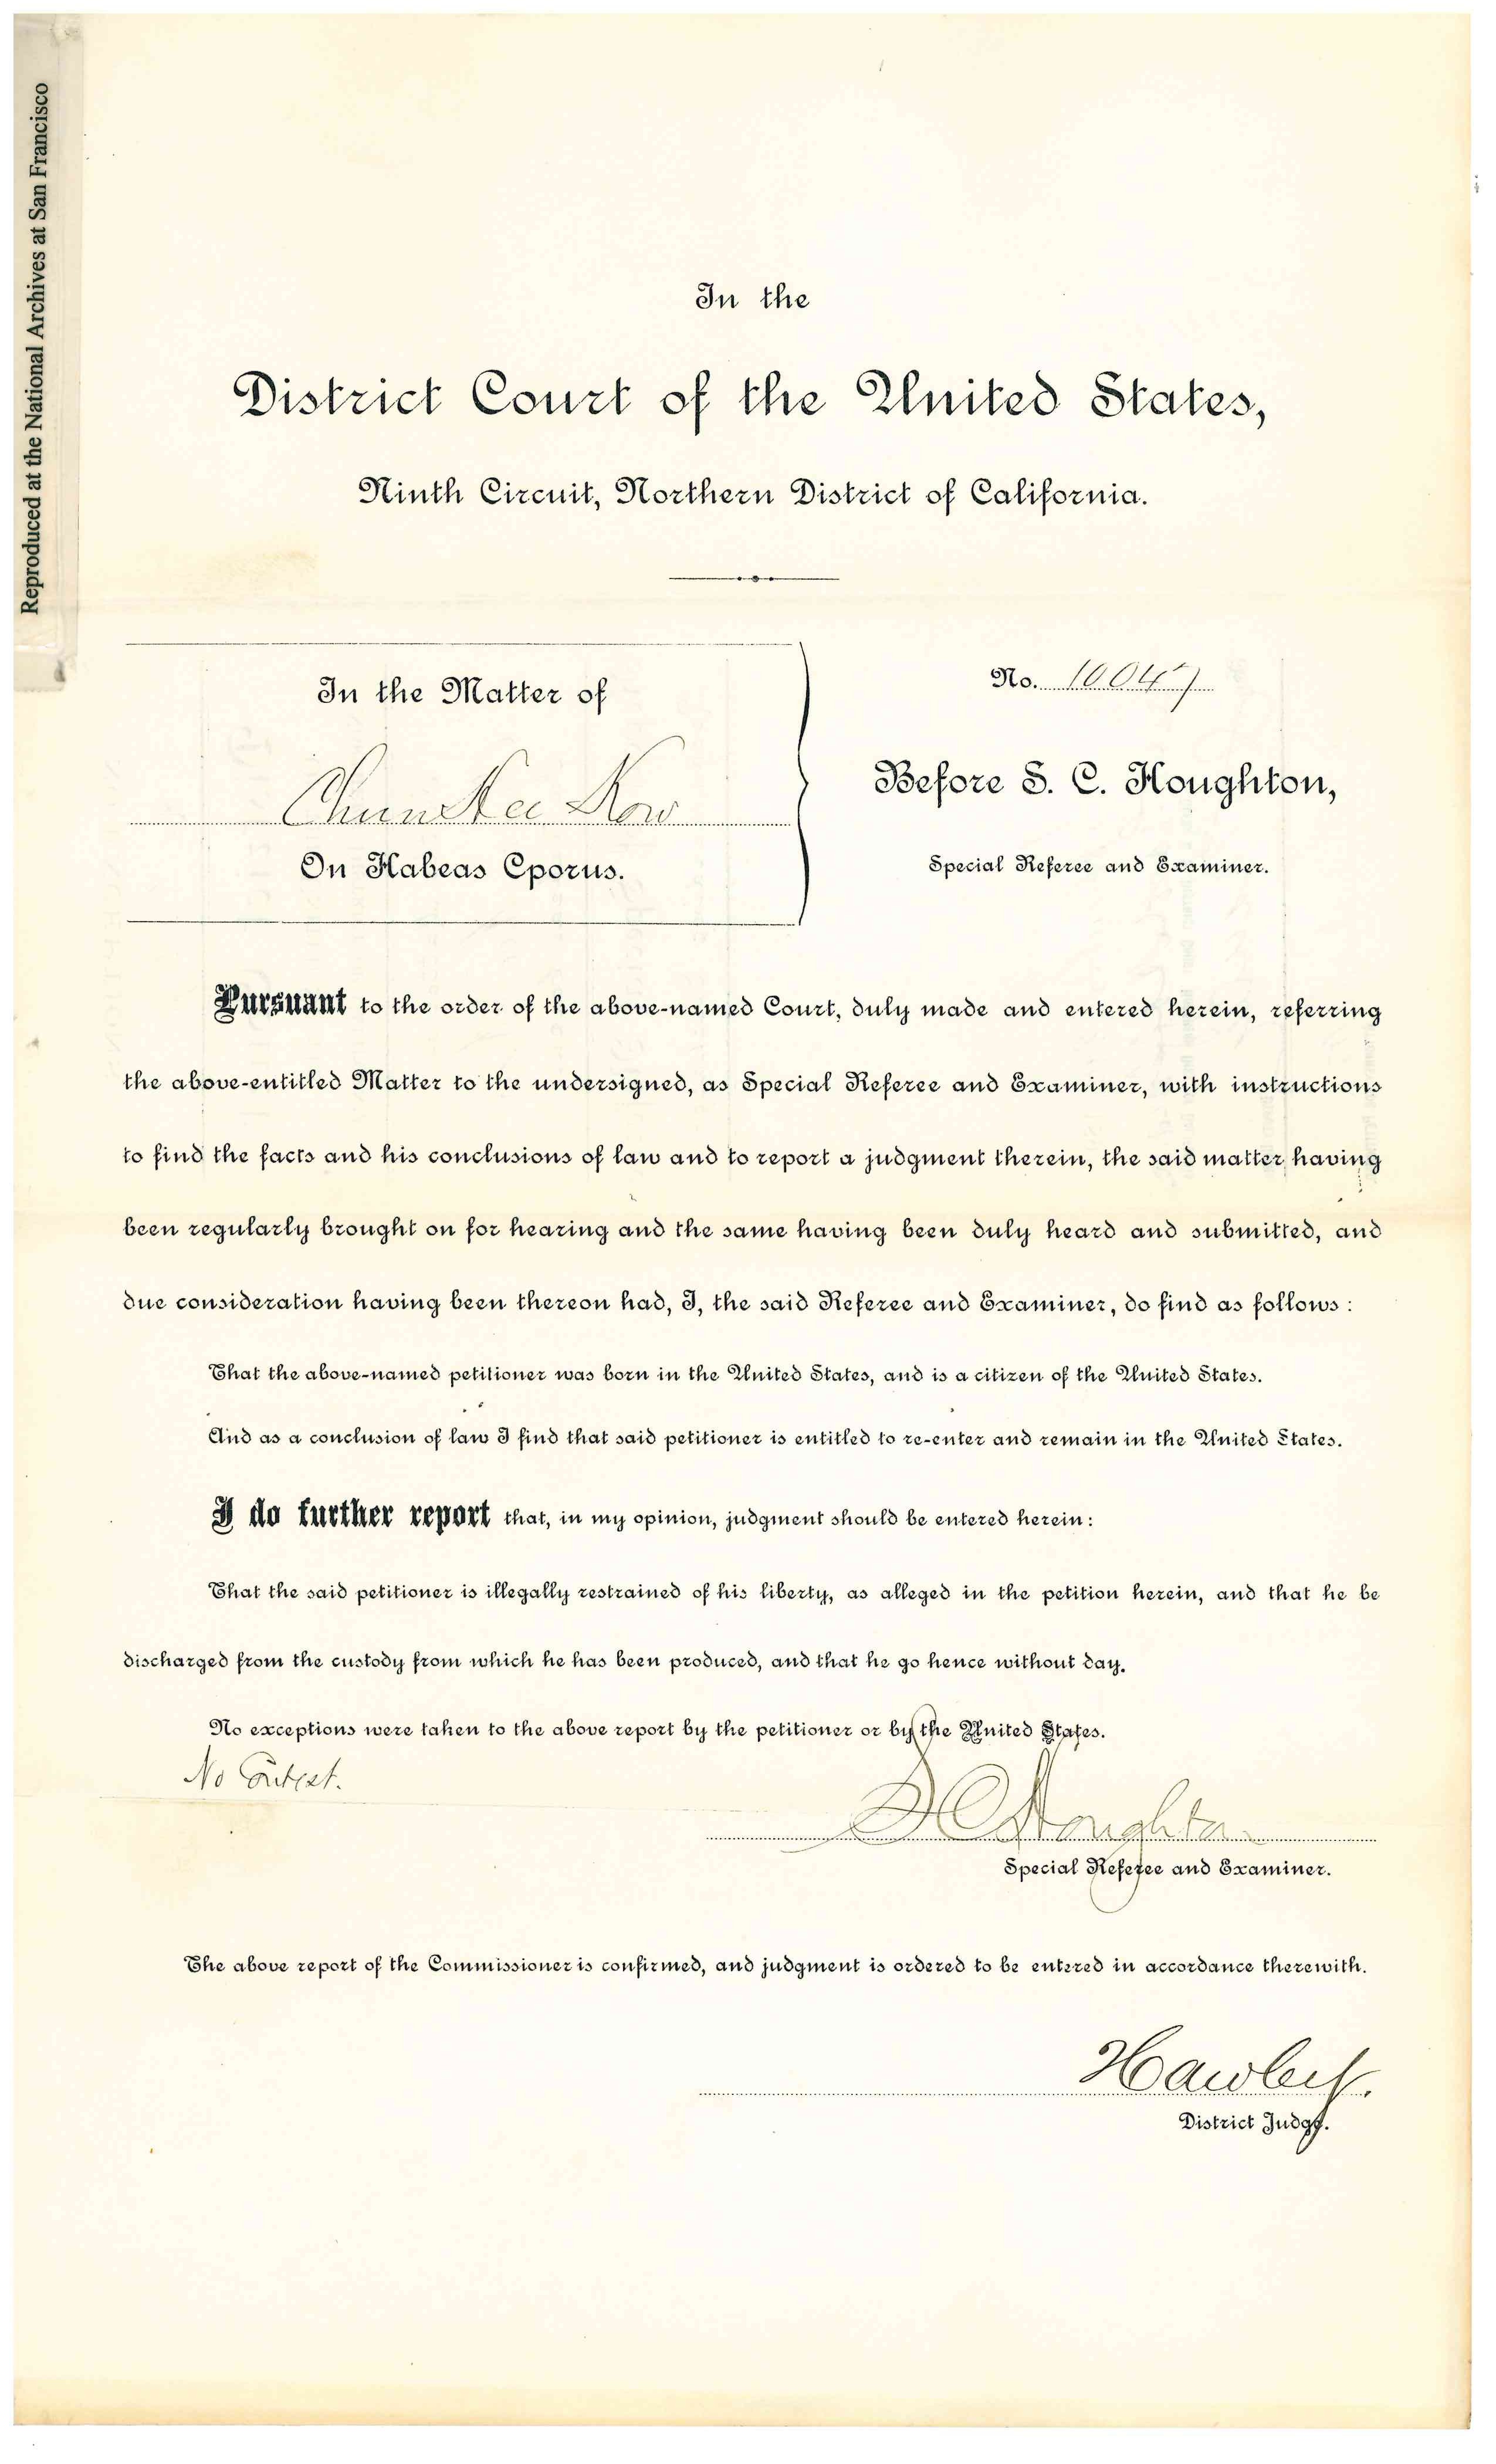 Reproduced at the National Archives at San Francisco
In the
District Court of the United States,
Ninth Circuit, Northern District of California.
In the Matter of
No. 10047
Chun Kee Kow
Before S. C. Houghton,
On Habeas Cporus.
Special Referee and Examiner.
Pursuant to the order of the above-named Court, duly made and entered herein, referring
the above-entitled Matter to the undersigned, as Special Referee and Examiner, with instructions
to find the facts and his conclusions of law and to report a judgment therein, the said matter having
been regularly brought on for hearing and the same having been duly heard and submitted, and
due consideration having been thereon had, I, the said Referee and Examiner, do find as follows :
That the above-named petitioner was born in the United States, and is a citizen of the United States.
And as a conclusion of law I find that said petitioner is entitled to re-enter and remain in the United States.
I do further report that, in my opinion, judgment should be entered herein:
That the said petitioner is illegally restrained of his liberty, as alleged in the petition herein, and that he be
discharged from the custody from which he has been produced, and that he go hence without day.
No exceptions were taken to the above report by the petitioner or by the United States.
No Contest.
S C Houghton
Special Referee and Examiner.
The above report of the Commissioner is confirmed, and judgment is ordered to be entered in accordance therewith.
Hawley.
District Judge.